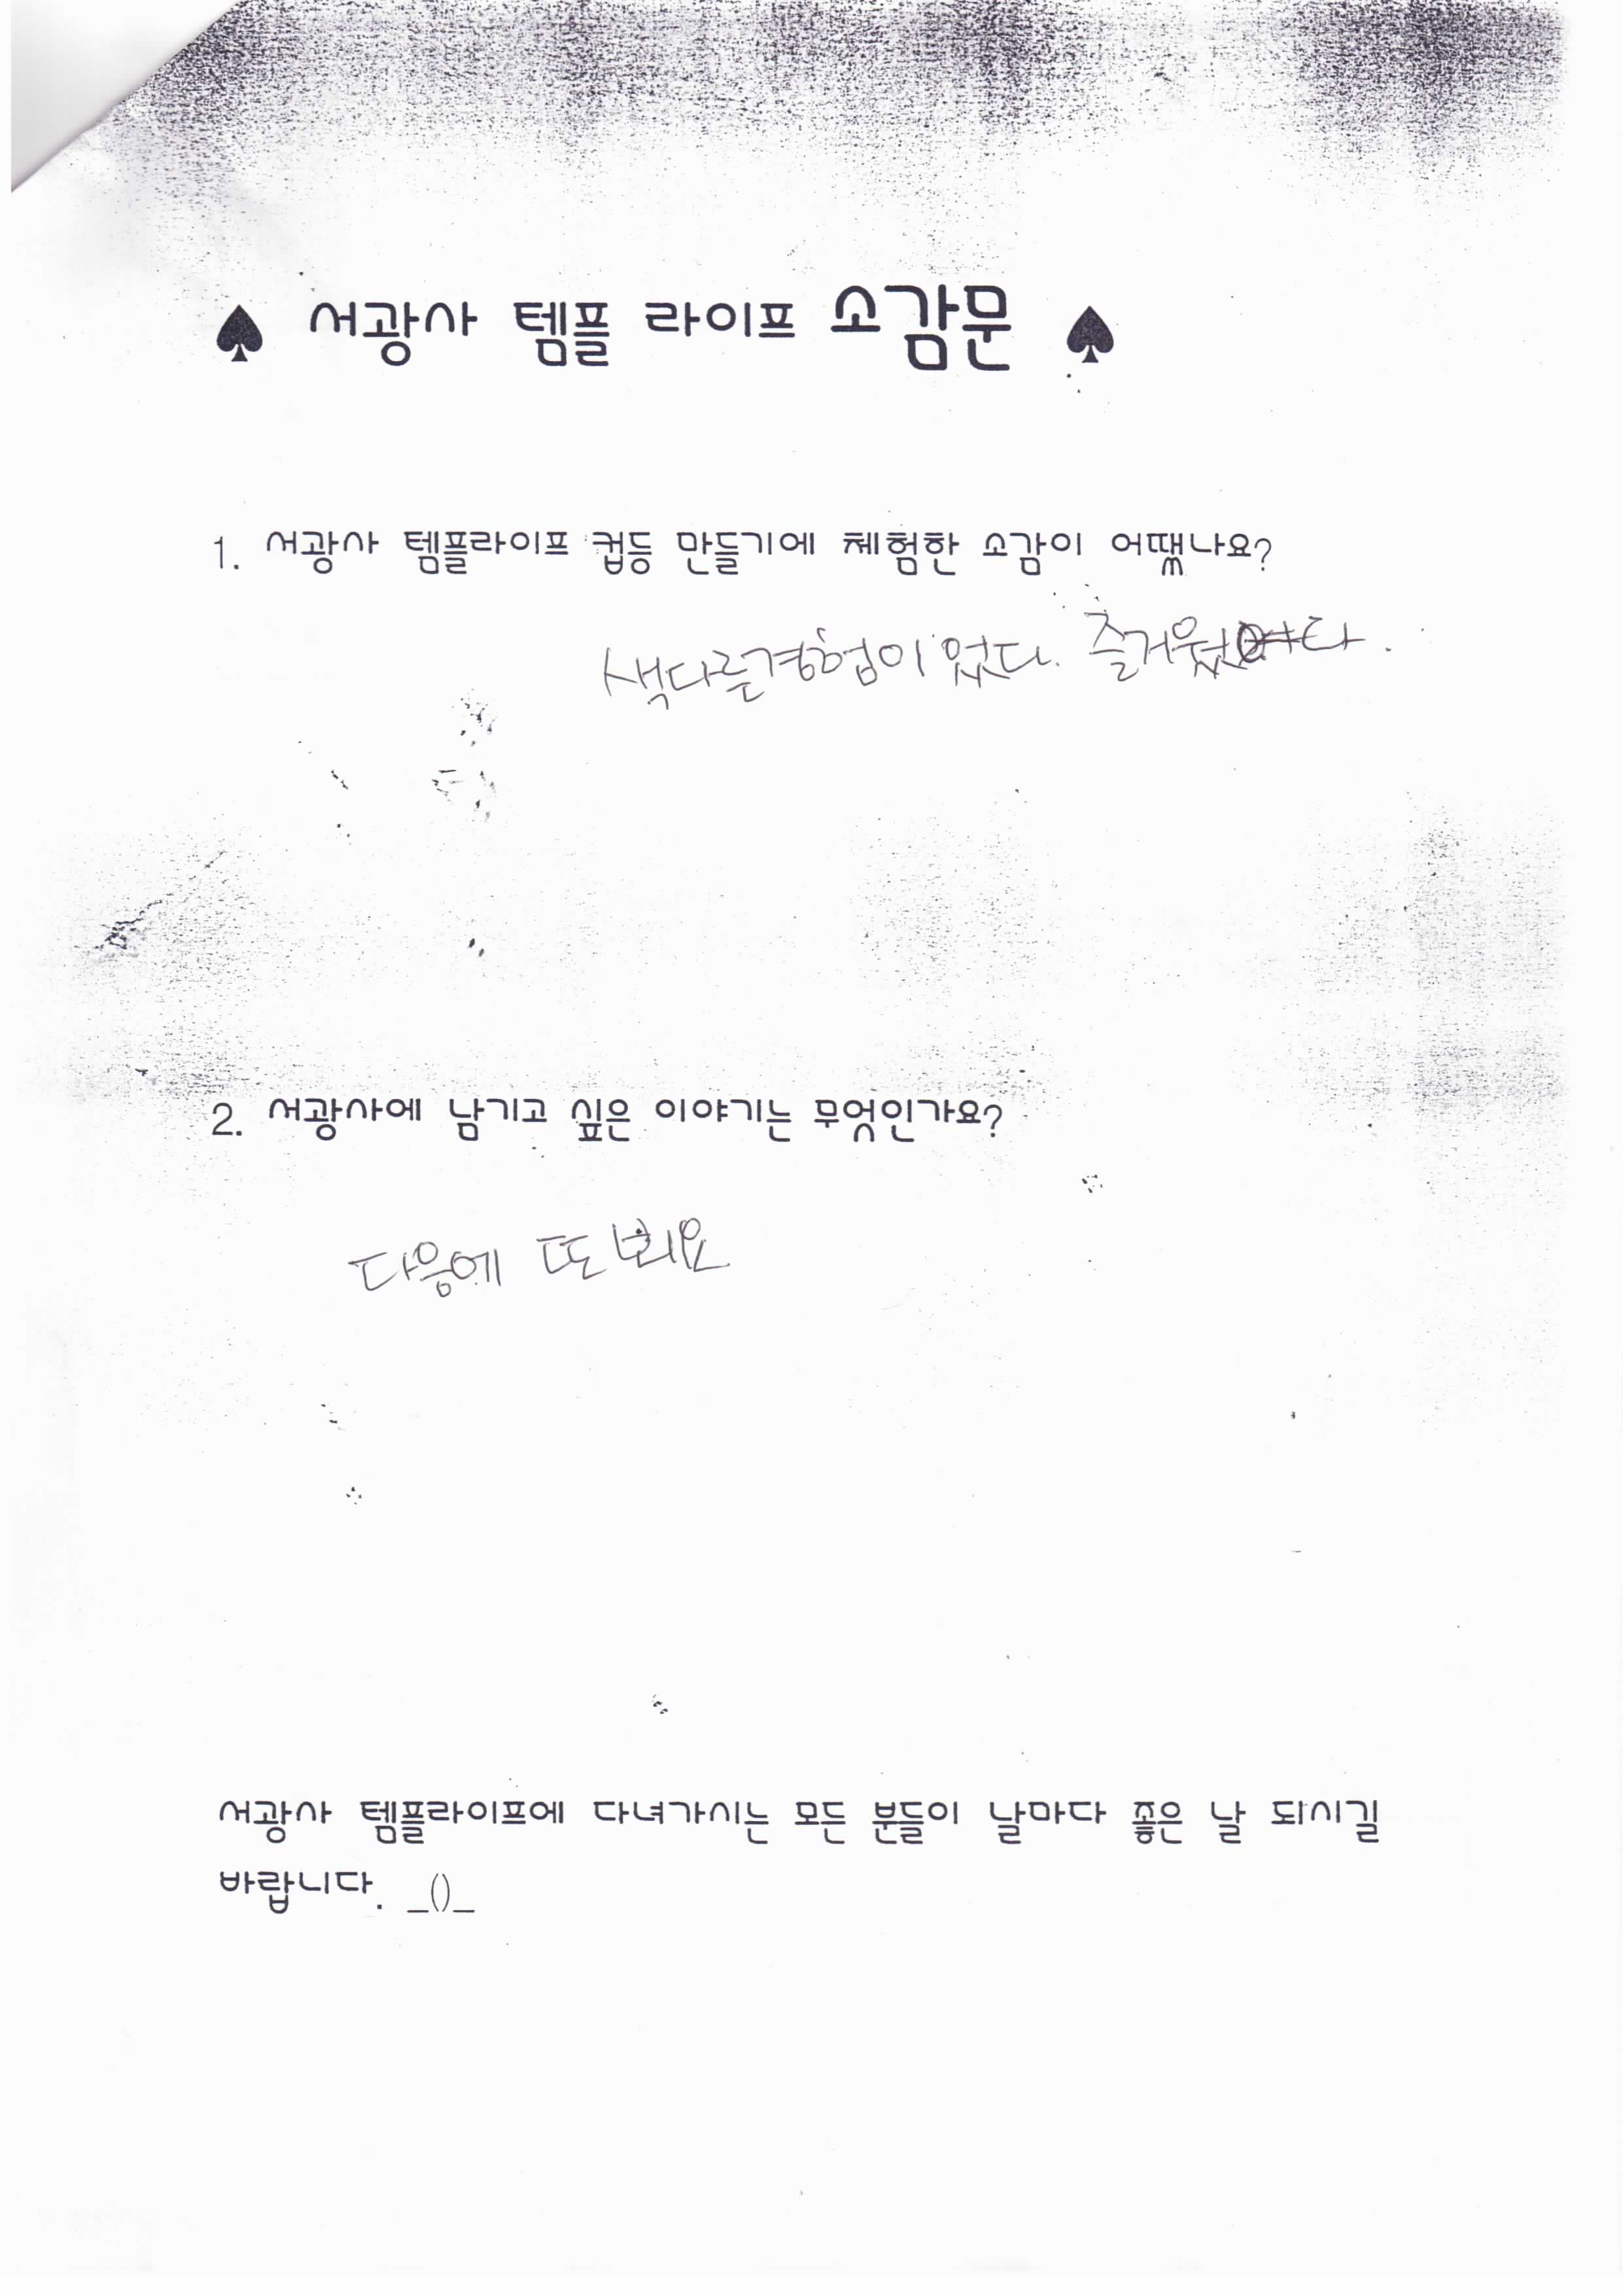 ♠ 서광사 템플 라이프 소감문 ♠
1. 서광사 템플라이프 컵등 만들기에 체험한 소감이 어땠나요?
색다른경험이었다. 즐거웠다.
2. 서광사에 남기고 싶은 이야기는 무엇인가요?
다음에 또 뵈요
서광사 템플라이프에 다녀가시는 모든 분들이 날마다 좋은 날 되시길
바랍니다. _()_